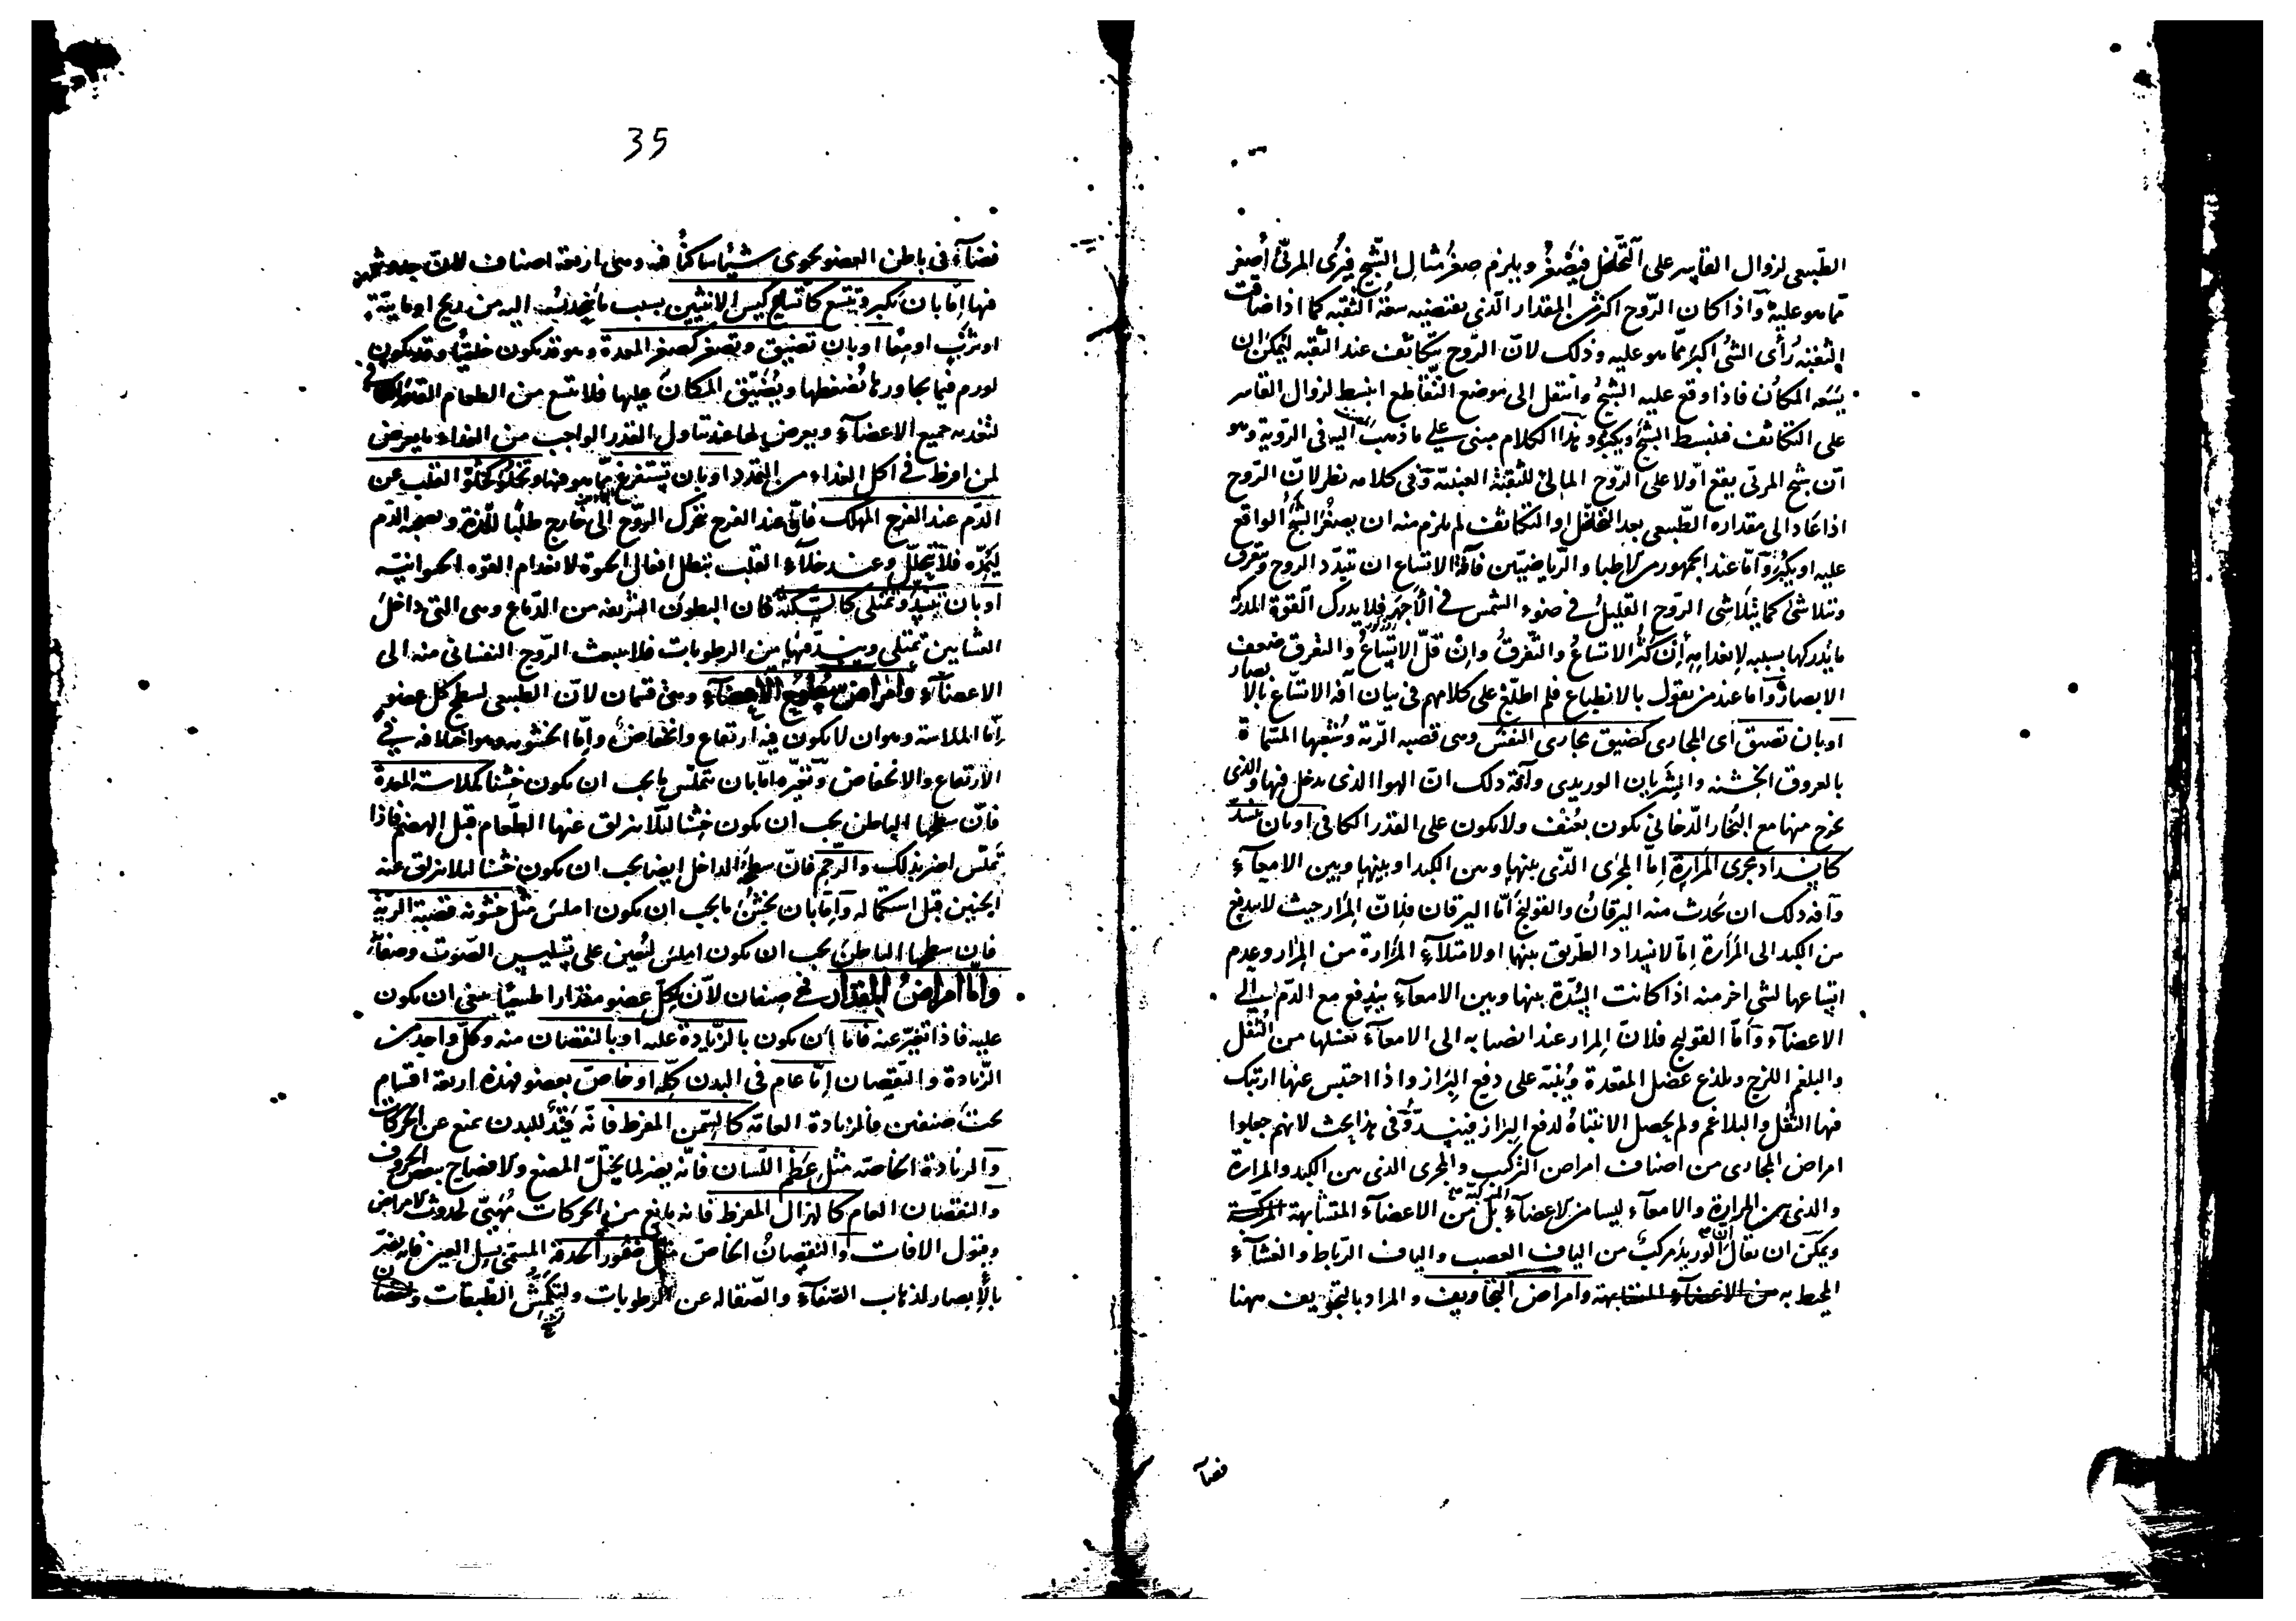 الطبيعى لزوال القاسر على التخلخل فيصغر ويلزم صغر مثال الشبح فيرى المرئى أصغر
مما هو عليه وإذا كان الروح اكثر من المقدار الذى يقتضيه سعة الثقبه كما اذا ضاقت
الثقبه رأى الشى اكبر مما هو عليه وذلك لان الروح يتكاثف عند الثقبه ليمكن ان
يسعه المكان فاذا وقع عليه الشبح وانتقل الى موضع التقاطع انبسط لزوال القاسر
على التكاثف فينبسط الشبح ويكبر وهذا الكلام مبنى على ما ذهب اليه فى الروية وهو
ان شبح المرئى يقع أولا على الروح المالئ للثقبة العنبية وفى كلامه نظر لان الروح
اذا عاد الى مقداره الطبيعى بعد التخلخل او التكاثف لم يلزم منه ان يصغر الشبح الواقع
عليه او يكبر وأما عند الجمهور من الاطبا والرياضيين فآفة الاتساع ان يتبدد الروح ويتفرق
ويتلاشى كما يتلاشى الروح القليل فى ضوء الشمس فى الأجهر فلا يدرك القوة المدركة
ما يدركها بسببه لانعدامه إن كثر الاتساع والتفرق وان قل الاتساع والتفرق ضعف
الابصار وأما عند من يقول بالانطباع فلم اطلع على كلامهم فى بيان آفة الاتساع بالابصار
او بان تضيق اى المجارى كضيق مجارى النفس وهى قصبه الرئة وشعبها المسماة
بالعروق الخشنه والشريان الوريدى وآفة ذلك ان الهوا الذى يدخل فيها والذى
يخرج منها مع البخار الدخانى يكون بعنف ولا يكون على القدر الكافى او بان تنسد
كانسداد مجرى المرارة إما المجرى الذى بينها وبين الكبد او بينها وبين الامعآء
وآفة ذلك ان يحدث منه اليرقان والقولنج أما اليرقان فلان المرار حيث لا يندفع
من الكبد الى المرارة إما لانسداد الطريق بينها او لامتلآء المرارة من المرار وعدم
اتساعها لشى اخر منه اذا كانت السدة بينها وبين الامعآء يندفع مع الدم الى
الاعضآء وأما القولنج فلان المرار عند انصبابه الى الامعآء يغسلها من الثفل
والبلغم اللزج ويلذع عضل المقعدة وينبه على دفع البراز واذا احتبس عنها ارتبك
فيها الثفل والبلاغم ولم يحصل الانتباه لدفع البراز فينسد وفى هذا بحث لانهم جعلوا
امراض المجارى من اصناف امراض التركيب والمجرى الذى بين الكبد والمرارة
والذى بين المرارة والامعآء ليسا من الاعضآء المركبة بل من الاعضآء المتشابهة
ويمكن ان يقال ان الوريد مركب من الياف العصب والياف الرباط والغشآء
المحيط به من الاعضآء المتشابهة وامراض التجاويف والمراد بالتجويف ههنا
فضآء
35
فضآء فى باطن العضو يحوى شيئا ساكنا فيه وهى اربعة اصناف لان حدوثها
فيها إما بان تكبر وتتسع كاتساع كيس الانثيين بسبب ما ينجذب اليه من ريح او مائية
او ثرب او معا او بان تضيق وتصغر كصغر المعدة وهو قد يكون خلقيا وقد يكون
لورم فيما يجاورها يضغطها ويضيق المكان عليها فلا تتسع من الطعام القدر الكافى
لتغذيه جميع الاعضآء ويعرض لها عند تناول القدر الواجب من الغذاء ما يعرض
لمن افرط فى اكل الغذاء من التمدد او بان تستفرغ مما هو فيها وتخلو كخلو القلب عن
الدم عند الفرح المهلك فان عند الفرح يتحرك الروح الى خارج طلبا للذة ويصحبه الدم
ليمده فلا يتحلل وعند خلآء القلب تبطل افعال الحيوة لانعدام القوه الحيوانيه
او بان تنسد وتمتلى كالسكتة فان البطون الشريفه من الدماغ وهى التى داخل
الغشايين تمتلى وينسد فمها من الرطوبات فلا ينبعث الروح النفسانى منه الى
الاعضآء وامراض سطوح الاعضآء وهى قسمان لان الطبيعى لسطح كل عضو
إما الملاسة وهو ان لا يكون فيه ارتفاع وانخفاض وإما الخشونه وهو اخلافه فى
الارتفاع والانخفاض وتغيره اما بان يتملس ما يجب ان يكون خشنا كملاسة المعدة
فان سطحها الباطن يجب ان يكون خشنا لئلا ينزلق عنها الطعام قبل الهضم فاذا
تملس اضر بذلك والرحم فان سطحه الداخل ايضا يجب ان يكون خشنا لئلا ينزلق عنه
الجنين قبل استكماله وإما بان يخشن ما يجب ان يكون املس مثل خشونه قصبة الرئة
فان سطحها الباطن يجب ان يكون املس لتعين على تسليس الصوت وصفائه
واما امراض المقدار فهى صنفان لان لكل عضو مقدارا طبيعيا ينبغى ان يكون
عليه فاذا تغير عنه فاما أن يكون بالزيادة عليه او بالنقصان منه وكل واحد من
الزيادة والنقصان إما عام فى البدن كله او خاص بعضو فهذه اربعة اقسام
تحت صنفين فالزيادة العامة كالسمن المفرط فانه قيد للبدن يمنع عن الحركات
والزيادة الخاصة مثل عظم اللسان فانه يضر لما يختل المضغ ولافصاح ببعض الحروف
والنقصان العام كالهزال المفرط فانه مانع من الحركات مهيئ لحدوث الامراض
وقبول الافات والنقصان الخاص مثل ضمور الحدقة المسمى بسل العين فانه يضر
بالإبصار لذهاب الصفآء والصقاله عن الرطوبات ولتكمش الطبقات ونقصان